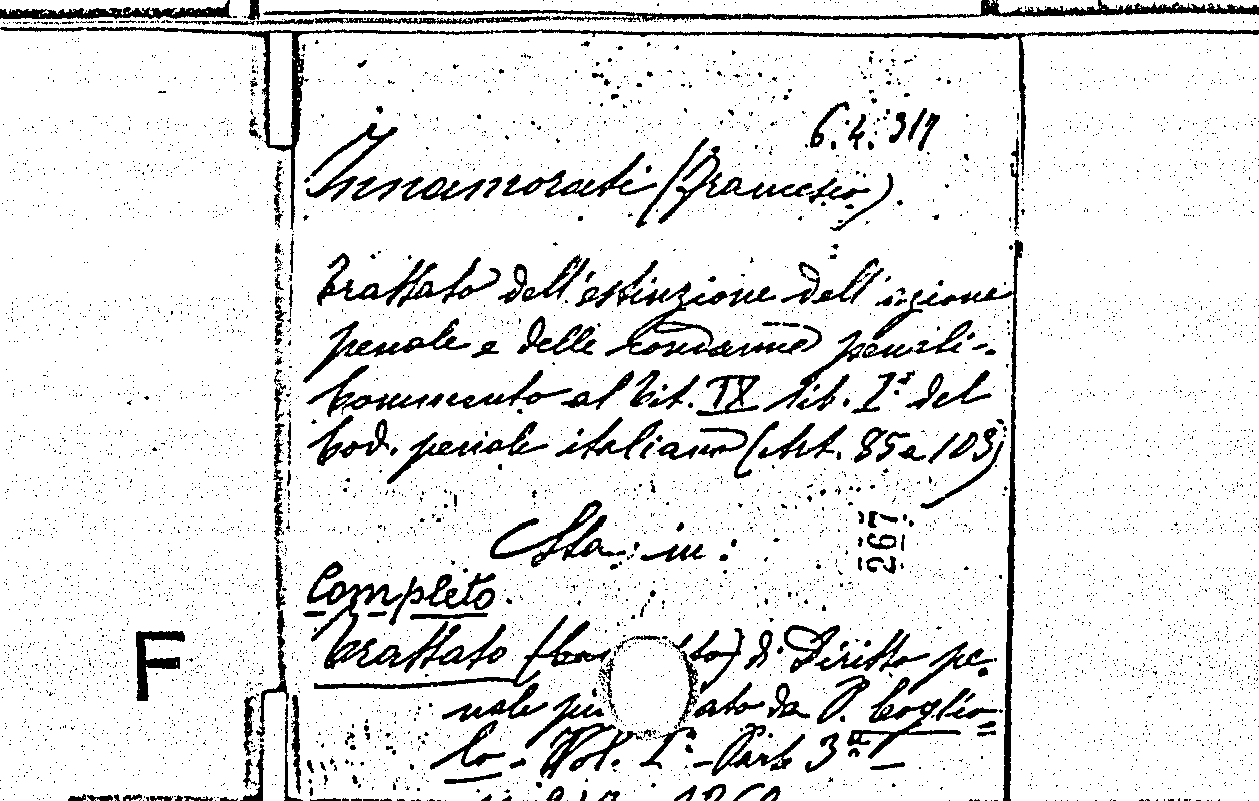 6.4.317
Innamorati (Francesco).
Trattato dell'estinzione dell'azione
penale e delle condanne penali-
Commento al Tit. IX lib. I° del
Cod. penale italiano (Art. 85 a 103)
Sta: in:
267
Completo
Trattato di Diritto pe-
nale da P. Coglio-
lo - Vol. I° - Parte 3ª
F